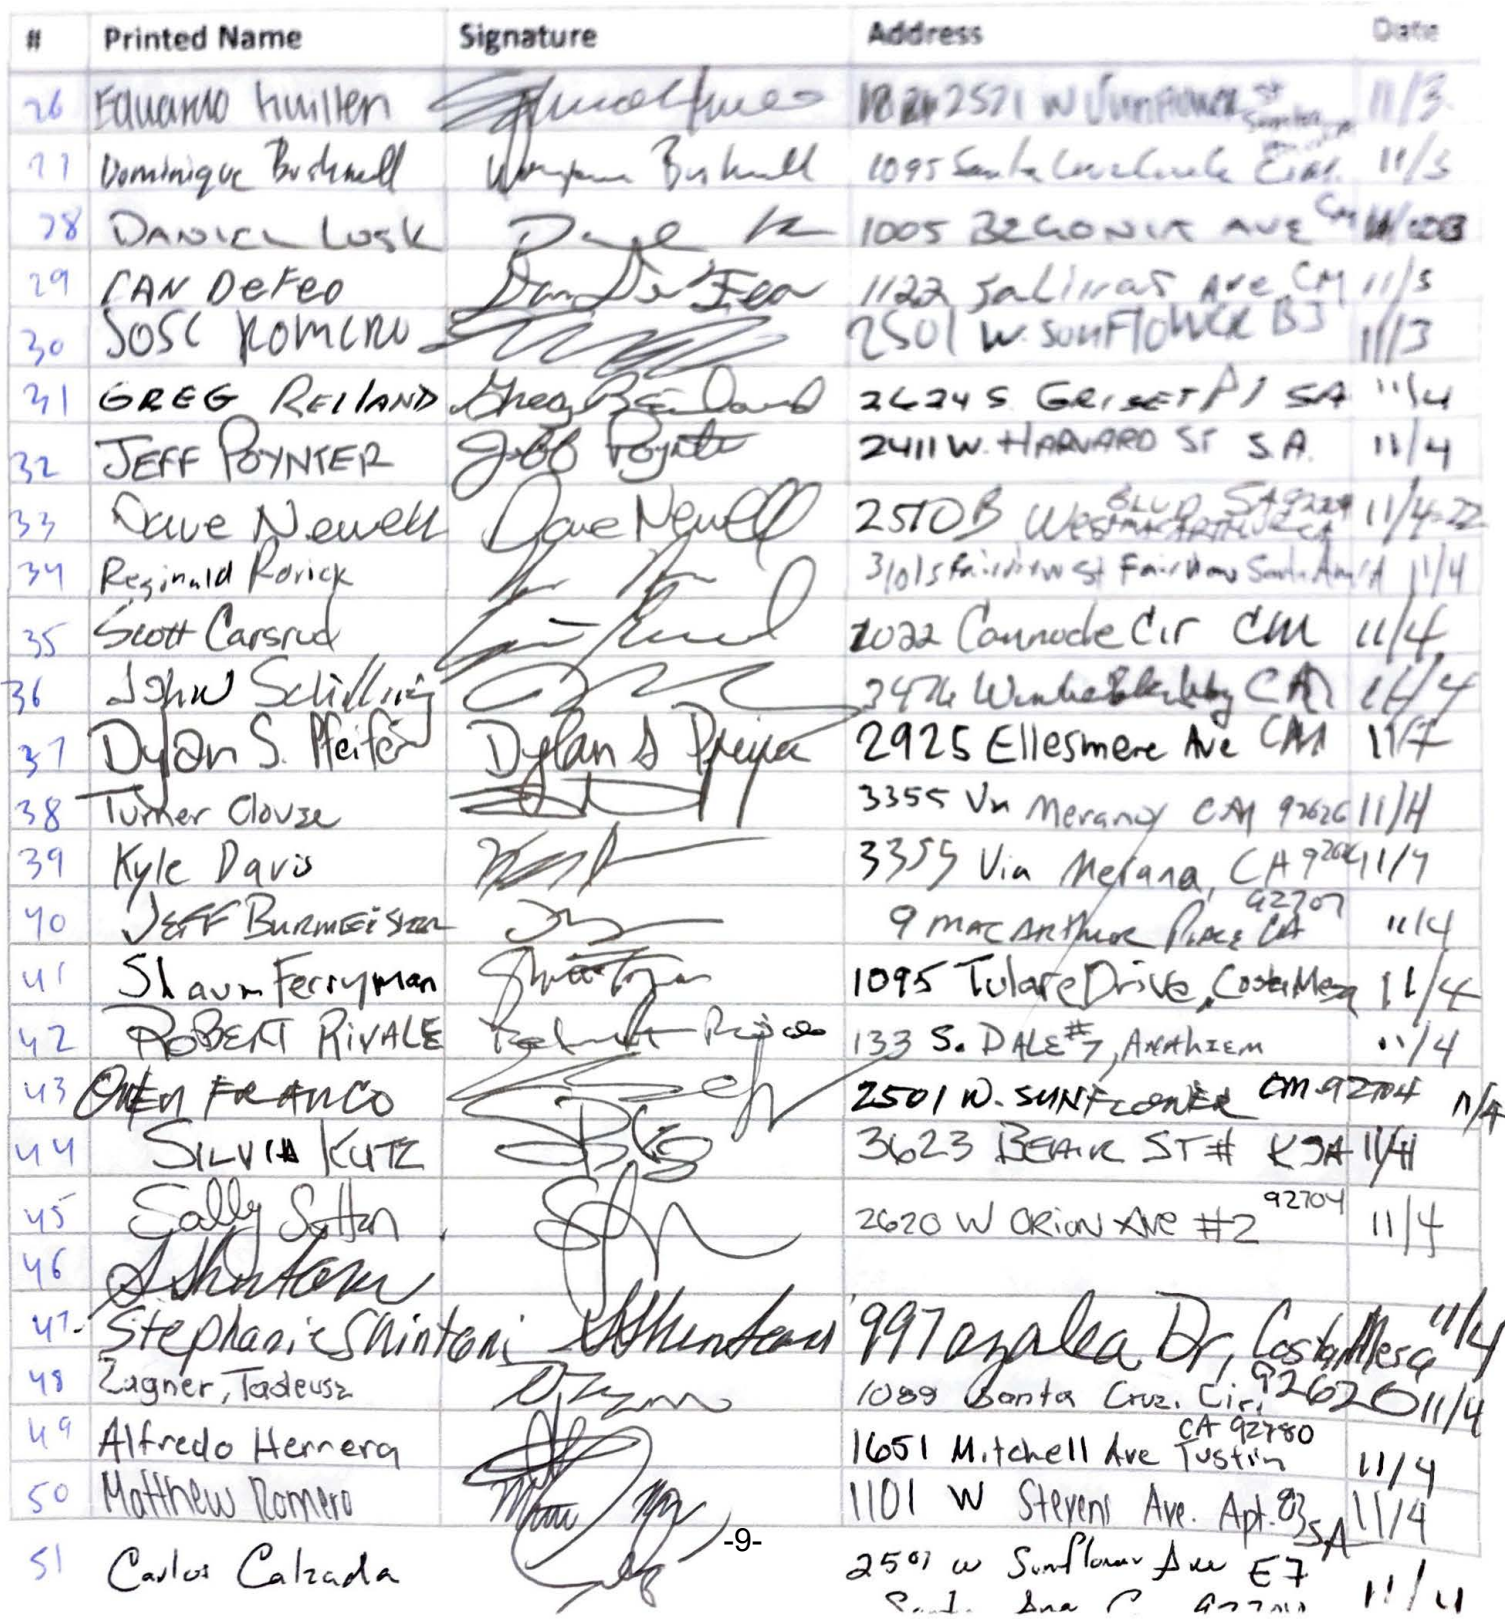 # Printed Name Signature Address Date
26 Eduardo Guillen 2521 W Sunflower St 11/3
27 Dominique Bushnell Bushnell 1095 Santa Cir 11/3
28 DANIEL LUSK 1005 BEGONIA AVE CM
29 DAN DeFeo Dan DeFeo 1122 Salinas Ave CM 11/3
30 JOSE ROMERO 2501 W. SUNFLOWER B3 11/3
31 GREG REILAND Greg Reiland 2624 S GRISET Pl SA 11/4
32 JEFF POYNTER Jeff Poynter 2411 W. HARVARD ST S.A. 11/4
33 Dave Newell Dave Newell 2510 B WEST MACARTHUR BLVD SA CA 11/4-22
34 Reginald Rorick Fairview St Santa Ana 11/4
35 Scott Carsrud Cir CM 11/4
36 John Schilling 11/4
37 Dylan S. Pfeifer Dylan S Pfeifer 2925 Ellesmere Ave CM 11/7
38 Turner Clouse 3355 Via Merano CM 92626 11/4
39 Kyle Davis 3355 Via Merano, CA 11/4
40 JEFF BURMEISTER 9 MACARTHUR PLACE CA 92707 11/4
41 Shaun Ferryman 1095 Tulare Drive, Costa Mesa 11/4
42 ROBERT RIVALE 133 S. DALE #7, ANAHIEM 11/4
43 OWEN FRANCO 2501 W. SUNFLOWER CM 92704 11/4
44 SILVIA KUTZ 3623 BEAR ST # K SA 11/4
45 Sally Sutton 2620 W ORION AVE #2 92704 11/4
46 SShintani
47- Stephanie Shintani SShintani 997 azalea Dr, Costa Mesa 11/4
92626
48 Zagner, Tadeusz 1089 Santa Cruz. Cir. 11/4
49 Alfredo Herrera 1651 Mitchell Ave Tustin CA 92780 11/4
50 Matthew Romero 1101 W Stevens Ave. Apt. 83 SA 11/4
-9-
51 Carlos Calzada 2501 W Sunflower Ave E7 11/4